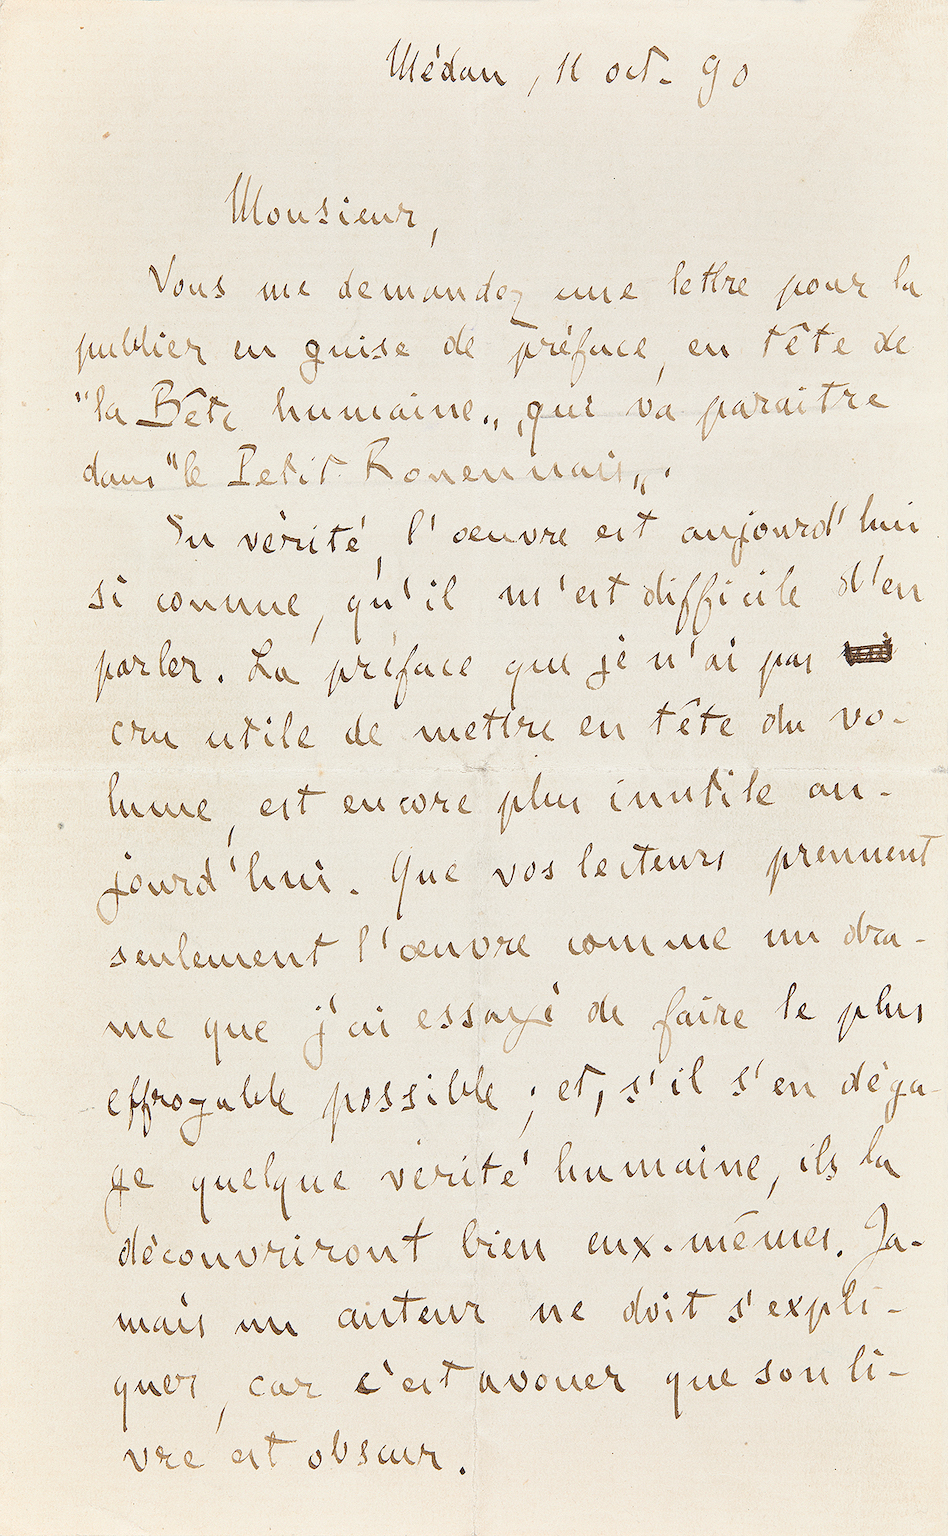 Médan, 11 oct. 90
Monsieur,
Vous me demandez une lettre pour la
publier en guise de préface, en tête de
"la Bête humaine„, qui va paraitre
dans "le Petit Rouennais„.
En vérité, l'œuvre est aujourd'hui
si connue, qu'il m'est difficile d'en
parler. La préface que je n'ai pas
cru utile de mettre en tête du vo-
lume, est encore plus inutile au-
jourd'hui. Que vos lecteurs prennent
seulement l'œuvre comme un dra-
me que j'ai essayé de faire le plus
effroyable possible ; et, s'il s'en déga-
ge quelque vérité humaine, ils la
découvriront bien eux-mêmes. Ja-
mais un auteur ne doit s'expli-
quer, car c'est avouer que son li-
vre est obscur.